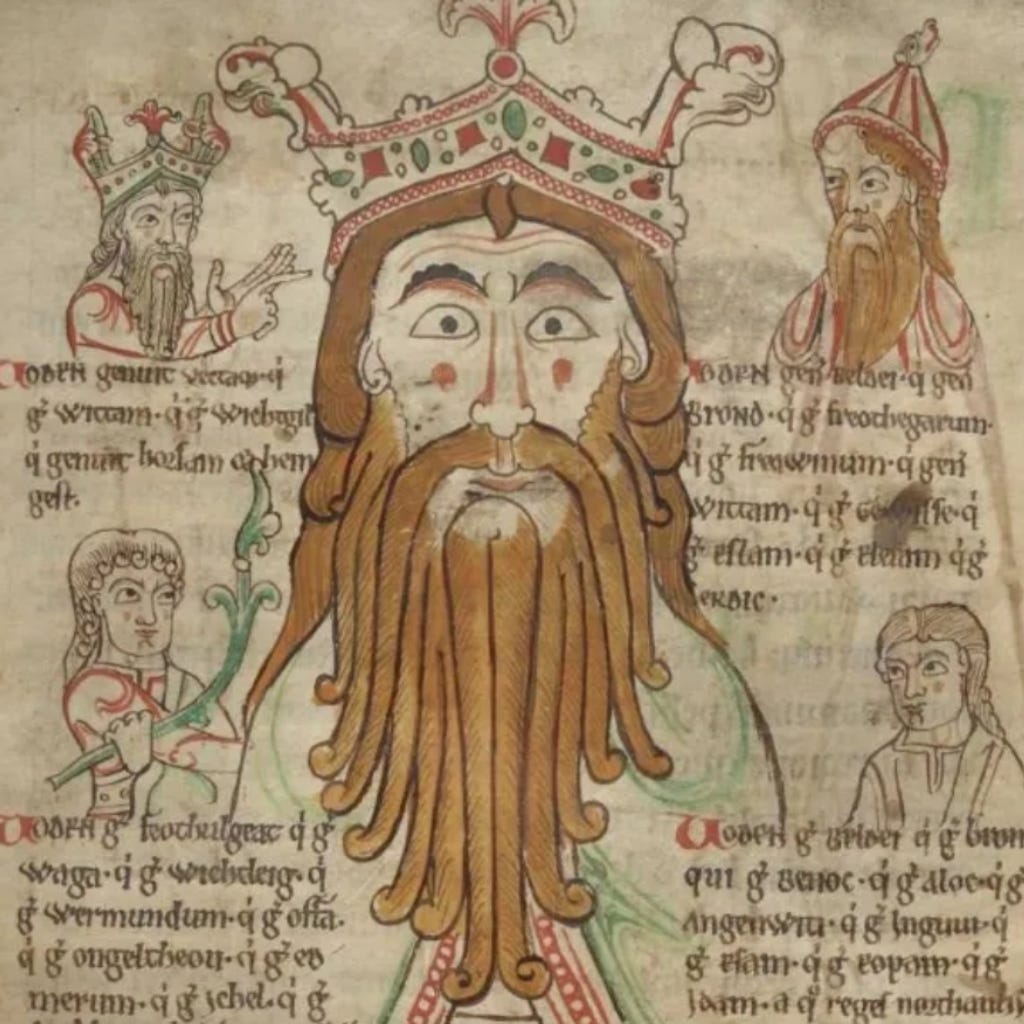 Woden genuit vectam· q̇
gͥ wittam· q̇ gͥ wichtgil
q̇ genuit horsam & hen
gest.
Woden genͥ beldei· q̇ genͥ
brond· q̇ gͥ freothegarum·
q̇ gͥ frewinum· q̇ genͥ
wittam· q̇ gͥ gewisse· q̇
gͥ eslam· q̇ gͥ eleum q̇ gͥ
cerdic·
Woden gͥ feothulgeat q̇ gͥ
waga· q̇ gͥ wichtleig· q̇
gͥ wermundum· q̇ gͥ offa·
q̇ gͥ ongeltheou· q̇ gͥ eo
merum· q̇ gͥ ichel· q̇ gͥ
Woden gͥ beldei q̇ gͥ bron
qui gͥ benoc· q̇ gͥ aloc· q̇ gͥ
angenwiti· q̇ gͥ inguii· q̇
gͥ esam· q̇ gͥ eopam· q̇ gͥ
idam· a qͦ reges northanh